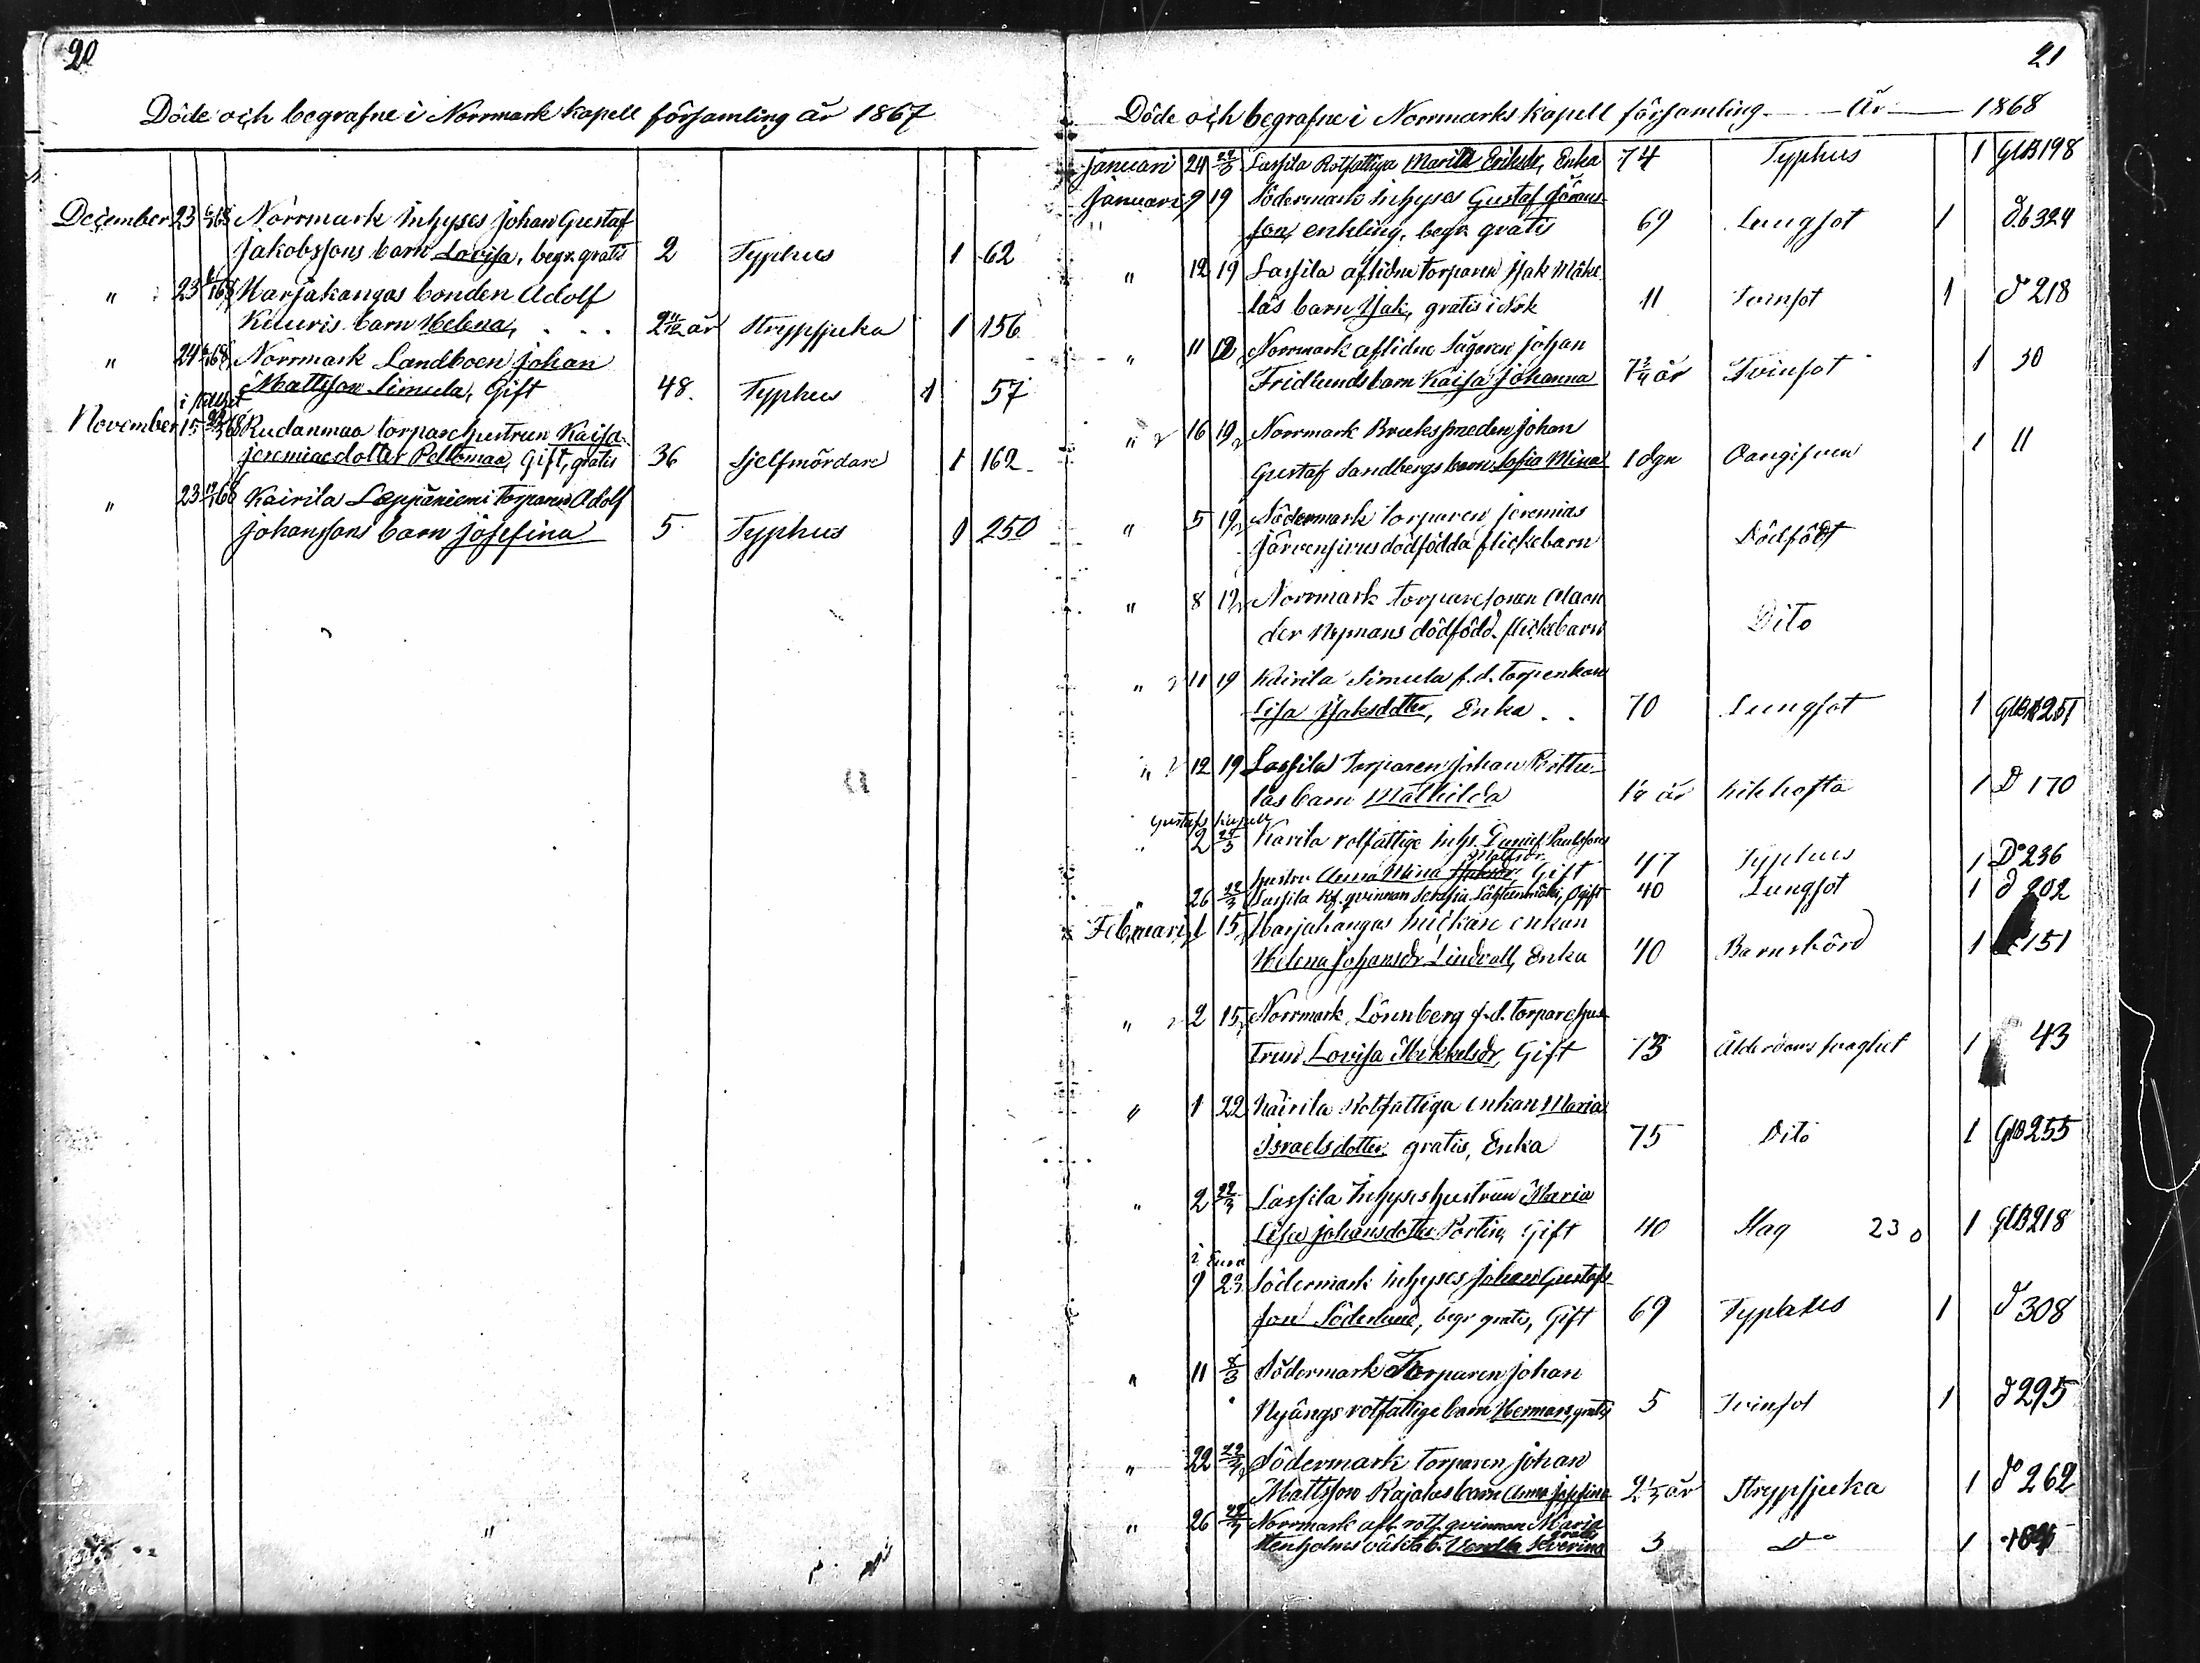 20
Döde och begrafne i Norrmark Kapell församling år 1867
December 23 Norrmark Inhyses Johan Gustaf
Jakobssons barn Lovisa, begr. gratis 2 Typhus 1 62
" 23 Harjakangas bonden Adolf
Kuuris barn Helena, 2 11/12 år Strypsjuka 1 156
" 24 Norrmark Landboen Johan
Mattsson Simula, Gift 48. Typhus 1 57
November 15 Rudanmaa torparehustrun Kaisa
Jeremiaedotter Peltomaa, Gift, gratis 36 Sjelfmördare 1 162
" 23 Kairila Leppäniemi Torparen Adolf
Johanssons barn Josefina 5 Typhus 1 250
21
Döde och begrafne i Norrmarks Kapell församling År 1868
Januari 24 22/3 Lassila Rotfattiga Maria Eriksdr, Enka 74 Typhus 1 GLB 198
Januari 9 19 Södermark Inhyses Gustaf Görans-
son, enkling, begr. gratis 69 Lungsot 1 324
" 12 19 Lassila aflidne torparen Isak Mäke-
läs barn Isak, gratis i Nrk 11 Tvinsot 1 d 218
" 11 12 Norrmark aflidne Sågaren Johan
Fridlunds barn Kaisa Johanna 7 3/4 år Tvinsot 1 30
" 16 19 Norrmark Bruksmeden Johan
Gustaf Sandbergs barn Sofia Mina 1 dgn Oangifven 1 11
" 5 19 Södermark torparen Jeremias
Järvensivus dödfödda flickebarn Dödfödt
" 8 19 Norrmark torparesonen
der Nymans dödfödd. flickebarn Dito
" 11 19 Kairila Simula f.d. torpenkan
Lisa Isaksdotter, Enka 70 Lungsot 1 251
" 12 19 Lassila Torparen Johan
las barn Mathilda 1 1/4 år Kikhosta 1 D 170
Gustafs kapell
2 Kairila rotfattige Inhs. Paulssons
Mattsdr
hustru Anna Mina Gift 47 Typhus 1 Do 236
" 26 22/3 Lassila Rf. qvinnan Serafia Ogift 40 Lungsot 1 d 202
Februari 1 15 Harjakangas enkan
Helena Johansdr Lindvall, Enka 40 Barnsbörd 1 151
" 2 15 Norrmark Lönnberg f.d. torparehus-
trun Lovisa Mikkelsdr, Gift 73 Ålderdomssvaghet 1 43
" 1 22 Kairila Rotfattiga enkan Maria
Israelsdotter gratis, Enka 75 Dito 1 GLB 255
" 2 22/3 Lassila Inhyseshustrun Maria
Lisa Johansdotter Portin, Gift 40 Slag 23 0 1 GLB 218
i Eura
9 23 Södermark Inhyses Johan Gustafs-
son Söderlund, begr gratis, Gift 69 Typhus 1 d 308
" 11 8/3 Södermark Torparen Johan
Nyängs rotfattige barn Herman, gratis 5 Tvinsot 1 d 295
" 22 Södermark torparen Johan
Mattsson Rajalas barn Anna Josefina 2 1/3 år Strypsjuka 1 do 262
" 26 Norrmark afl. rotf. qvinnan Maria
gratis
Stenholms oäkta b. Vendla Severina 3 Do 1